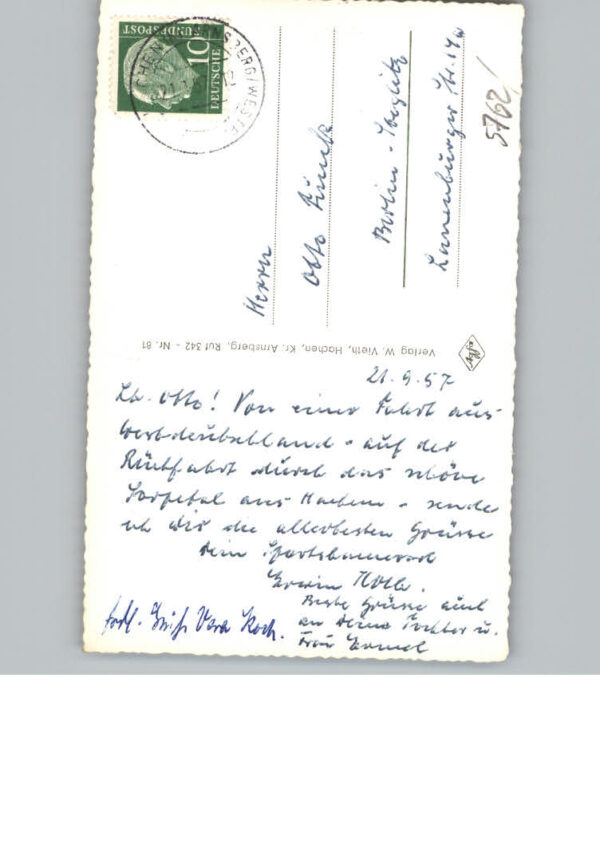 21.9.57
Lb. Otto! Von einer Fahrt aus
Westdeutschland - auf der
Rückfahrt durch das schöne
Sorpetal aus Hachen - sende
ich Dir die allerbesten Grüsse
Dein Sportskamerad
Erwin
Beste Grüsse auch
an Deine Tochter u.
Frau
frdl. Vera Koch.
Herrn
Otto
Berlin - Steglitz
Str. 14a
5762
Verlag W. Vieth, Hachen, Kr. Arnsberg, Ruf 342 - Nr. 81
DEUTSCHE
BUNDESPOST
10